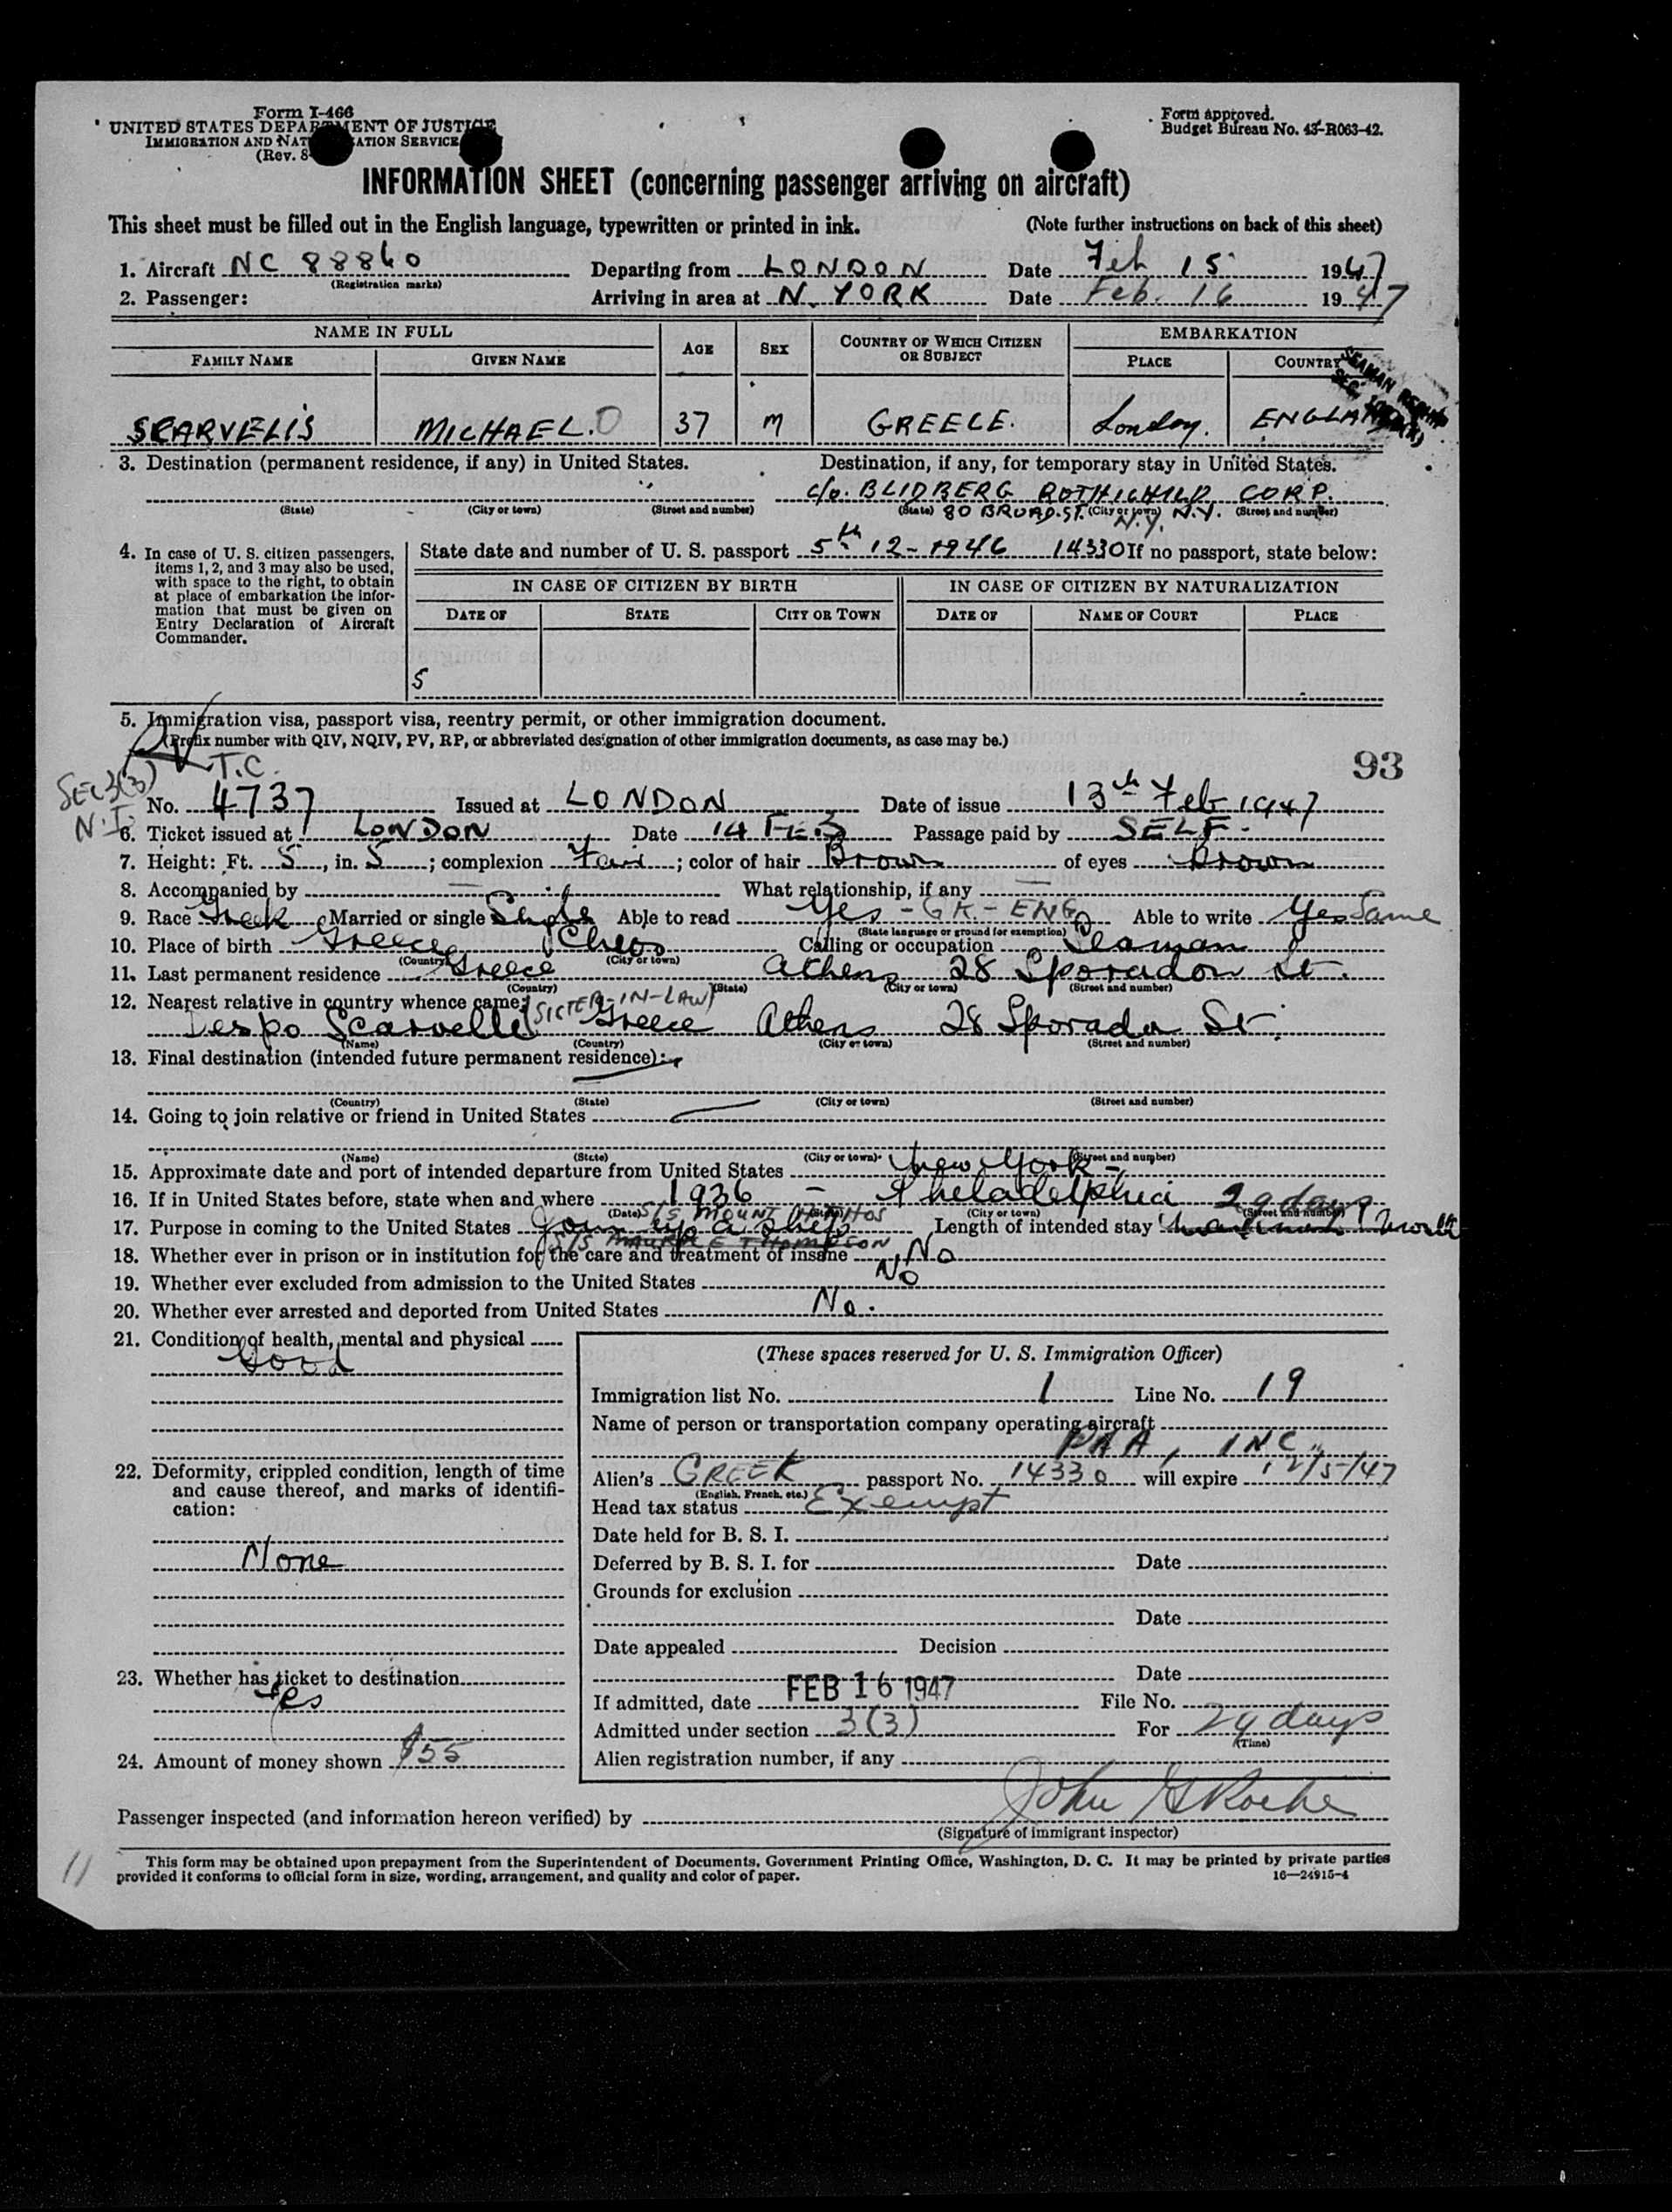 Form I-466
UNITED STATES DEPARTMENT OF JUSTICE
IMMIGRATION AND NAT ATION SERVICE
(Rev. 8-
Form approved.
Budget Bureau No. 43-R063-42.
INFORMATION SHEET (concerning passenger arriving on aircraft)
This sheet must be filled out in the English language, typewritten or printed in ink. (Note further instructions on back of this sheet)
1. Aircraft NC 88860 Departing from LONDON Date Feb 15 1947
(Registration marks)
2. Passenger: Arriving in area at N. YORK Date Feb. 16 1947
NAME IN FULL AGE SEX COUNTRY OF WHICH CITIZEN OR SUBJECT EMBARKATION
FAMILY NAME GIVEN NAME PLACE COUNTRY
SCARVELIS MICHAEL. O 37 M GREECE. London. ENGLAND
SEAMAN
SEC.
3. Destination (permanent residence, if any) in United States. Destination, if any, for temporary stay in United States.
c/o. BLIDBERG ROTHICHILD CORP.
(State) (City or town) (Street and number) (State) 80 BROAD. ST. (City or town) N.Y. N.Y. (Street and number)
4. In case of U. S. citizen passengers, items 1, 2, and 3 may also be used, with space to the right, to obtain at place of embarkation the information that must be given on Entry Declaration of Aircraft Commander.
State date and number of U. S. passport 5th 12-1946 14330 If no passport, state below:
IN CASE OF CITIZEN BY BIRTH IN CASE OF CITIZEN BY NATURALIZATION
DATE OF STATE CITY OR TOWN DATE OF NAME OF COURT PLACE
5
5. Immigration visa, passport visa, reentry permit, or other immigration document.
(Prefix number with QIV, NQIV, PV, RP, or abbreviated designation of other immigration documents, as case may be.)
93
T.C.
SEC 3(3)
N.I.
No. 4737 Issued at LONDON Date of issue 13th Feb 1947
6. Ticket issued at LONDON Date 14 FEB Passage paid by SELF -
7. Height: Ft. 5, in. 5; complexion Fair; color of hair Brown of eyes Brown
8. Accompanied by — What relationship, if any —
9. Race Greek Married or single Single Able to read Yes - GK - ENG Able to write Yes Same
(State language or ground for exemption)
10. Place of birth Greece Chios Calling or occupation Seaman
(Country) (City or town)
11. Last permanent residence Greece Athens 28 Sporadon St.
(Country) (State) (City or town) (Street and number)
12. Nearest relative in country whence came; (SISTER-IN-LAW)
Despo Scarvelis Greece Athens 28 Sporadon St.
(Name) (Country) (City or town) (Street and number)
13. Final destination (intended future permanent residence):
(Country) (State) (City or town) (Street and number)
14. Going to join relative or friend in United States —
(Name) (State) (City or town) (Street and number)
15. Approximate date and port of intended departure from United States New York -
16. If in United States before, state when and where 1936 - Pheladelphia 29 days
(Date) (State) (City or town) (Street and number)
S/S MOUNT ATHOS
17. Purpose in coming to the United States Join up a ship Length of intended stay 1 Month
S/S THOMPSON
18. Whether ever in prison or in institution for the care and treatment of insane No
19. Whether ever excluded from admission to the United States No
20. Whether ever arrested and deported from United States No.
21. Condition of health, mental and physical
Good
22. Deformity, crippled condition, length of time and cause thereof, and marks of identification:
None
23. Whether has ticket to destination
Yes
24. Amount of money shown $55
(These spaces reserved for U. S. Immigration Officer)
Immigration list No. 1 Line No. 19
Name of person or transportation company operating aircraft
PAA, INC.
Alien's GREEK passport No. 14330 will expire 12/5/47
(English, French, etc.)
Head tax status Exempt
Date held for B. S. I.
Deferred by B. S. I. for Date
Grounds for exclusion
Date
Date appealed Decision
Date
If admitted, date FEB 16 1947 File No.
Admitted under section 3(3) For 29 days
(Time)
Alien registration number, if any
Passenger inspected (and information hereon verified) by John G Roche
(Signature of immigrant inspector)
11
This form may be obtained upon prepayment from the Superintendent of Documents, Government Printing Office, Washington, D. C. It may be printed by private parties
provided it conforms to official form in size, wording, arrangement, and quality and color of paper. 16—24915-4